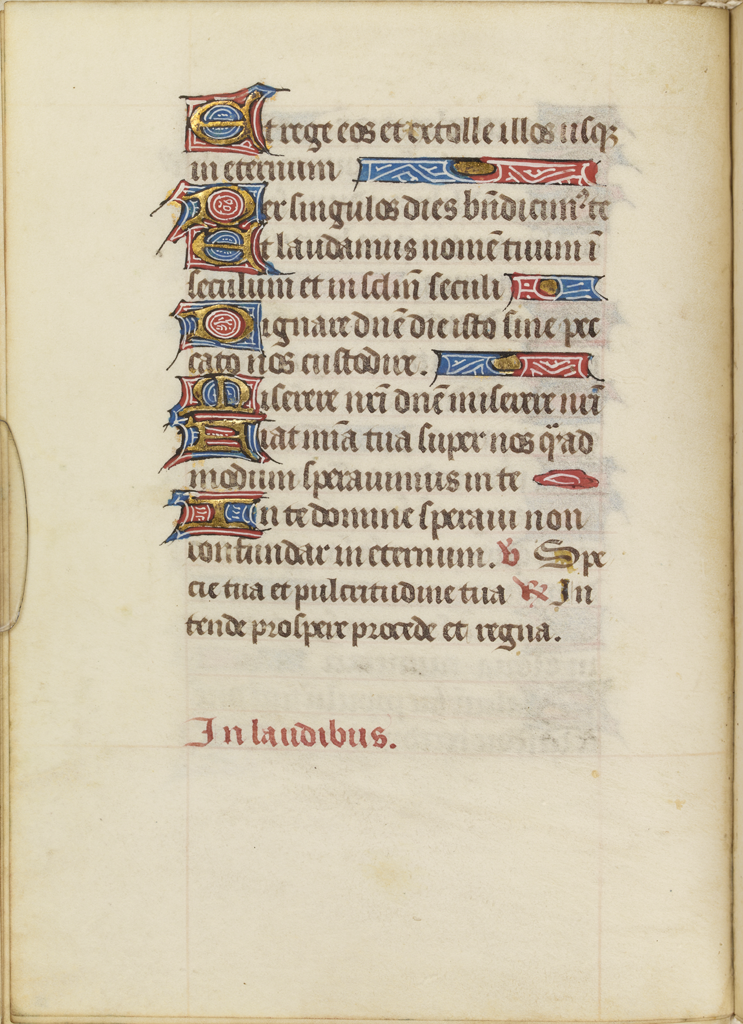 Et rege eos et extolle illos usq;
in eternum
Per singulos dies bn̄dicim⁹ te
Et laudamus nomē tuum ī
seculum et in sclm̄ seculi
Dignare dn̄e die isto sine pec
cato nos custodire.
Miserere nr̄i dn̄e miserere nr̄i
Fiat mīa tua super nos q̄ad
modum sperauimus in te
In te domine speraui non
confundar in eternum. ℣ Spe
cie tua et pulcritudine tua ℟ In
tende prospere procede et regna.
In laudibus.